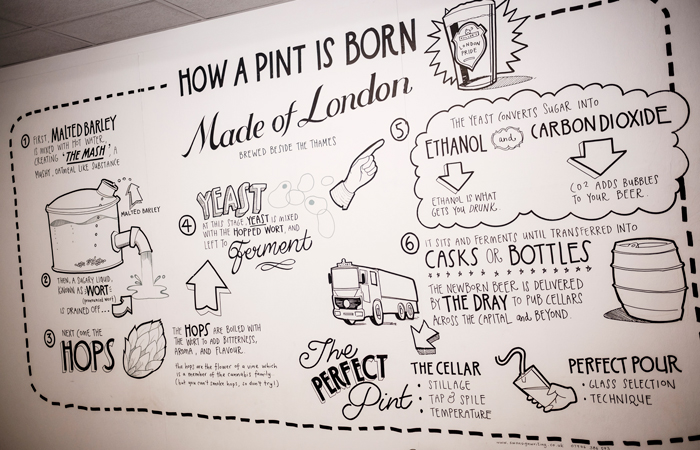 HOW A PINT IS BORN
Made of London
BREWED BESIDE THE THAMES
LONDON
PRIDE
1
FIRST, MALTED BARLEY
IS MIXED WITH HOT WATER,
CREATING 'THE MASH', A
MUSHY, OATMEAL LIKE SUBSTANCE
MALTED BARLEY
2
THEN, A SUGARY LIQUID,
KNOWN AS 'WORT'
IS DRAINED OFF...
3
NEXT COME THE
HOPS
THE HOPS ARE BOILED WITH
THE WORT TO ADD BITTERNESS,
AROMA, AND FLAVOUR.
The hops are the flower of a vine which
is a member of the cannabis family
(but you can't smoke hops, so don't try!)
4
YEAST
AT THIS STAGE YEAST IS MIXED
WITH THE HOPPED WORT, AND
LEFT TO Ferment
5
THE YEAST CONVERTS SUGAR INTO
ETHANOL and CARBON DIOXIDE
ETHANOL IS WHAT
GETS YOU DRUNK.
CO² ADDS BUBBLES
TO YOUR BEER.
6
IT SITS AND FERMENTS UNTIL TRANSFERRED INTO
CASKS OR BOTTLES
THE NEWBORN BEER IS DELIVERED
BY THE DRAY TO PUB CELLARS
ACROSS THE CAPITAL and BEYOND.
The
PERFECT
Pint:
THE CELLAR
• STILLAGE
• TAP & SPILE
• TEMPERATURE
PERFECT POUR
• GLASS SELECTION
• TECHNIQUE